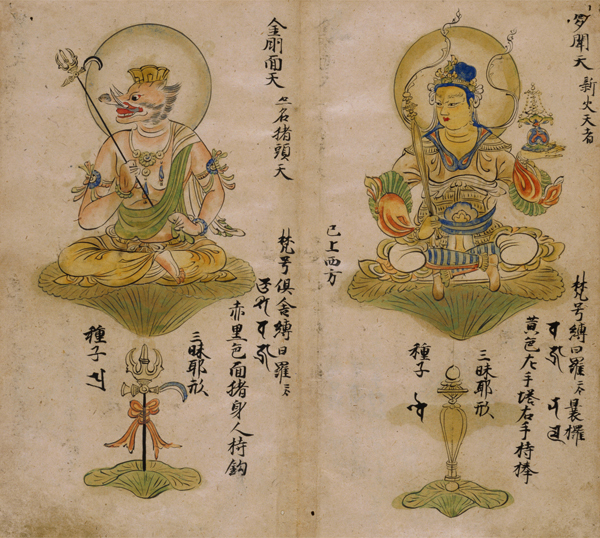 多聞天 新火天者
梵号縛曰羅二合曩攞
黄色左手塔右手持棒
三昧耶形
種子
已上西方
金剛面天 名猪頭天
梵号俱舎縛曰羅二合
赤里色面猪身人持鈎
三昧耶形
種子